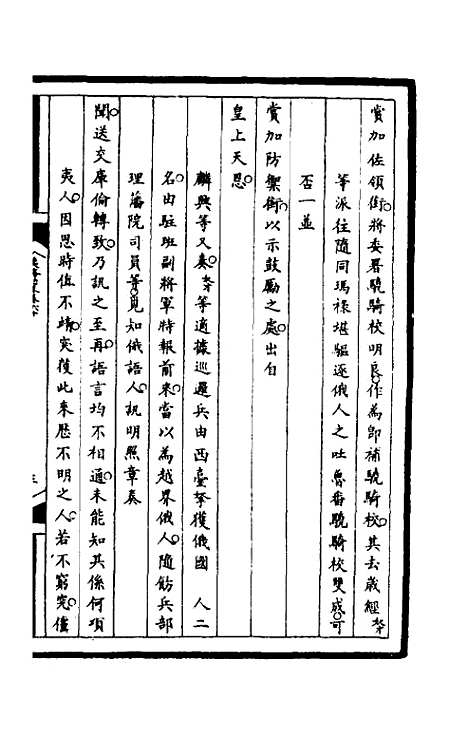 賞加佐領銜將委署驍騎校明良作為即補驍騎校其去歲經奴才
等派往隨同瑪祿堪驅逐俄人之吐魯番驍騎校雙成可
否一並
賞加防禦銜以示鼓勵之處出自
皇上天恩
麟興等又奏奴才等適據巡邏兵由西臺拏獲俄國 人二
名由駐班副將軍特報前來當以為越界俄人隨飭兵部
理藩院司員等覓知俄語人訊明照章奏
聞送交庫倫轉致乃訊之至再語言均不相通未能知其係何項
夷人因思時值不靖突獲此來歷不明之人若不窮究僅